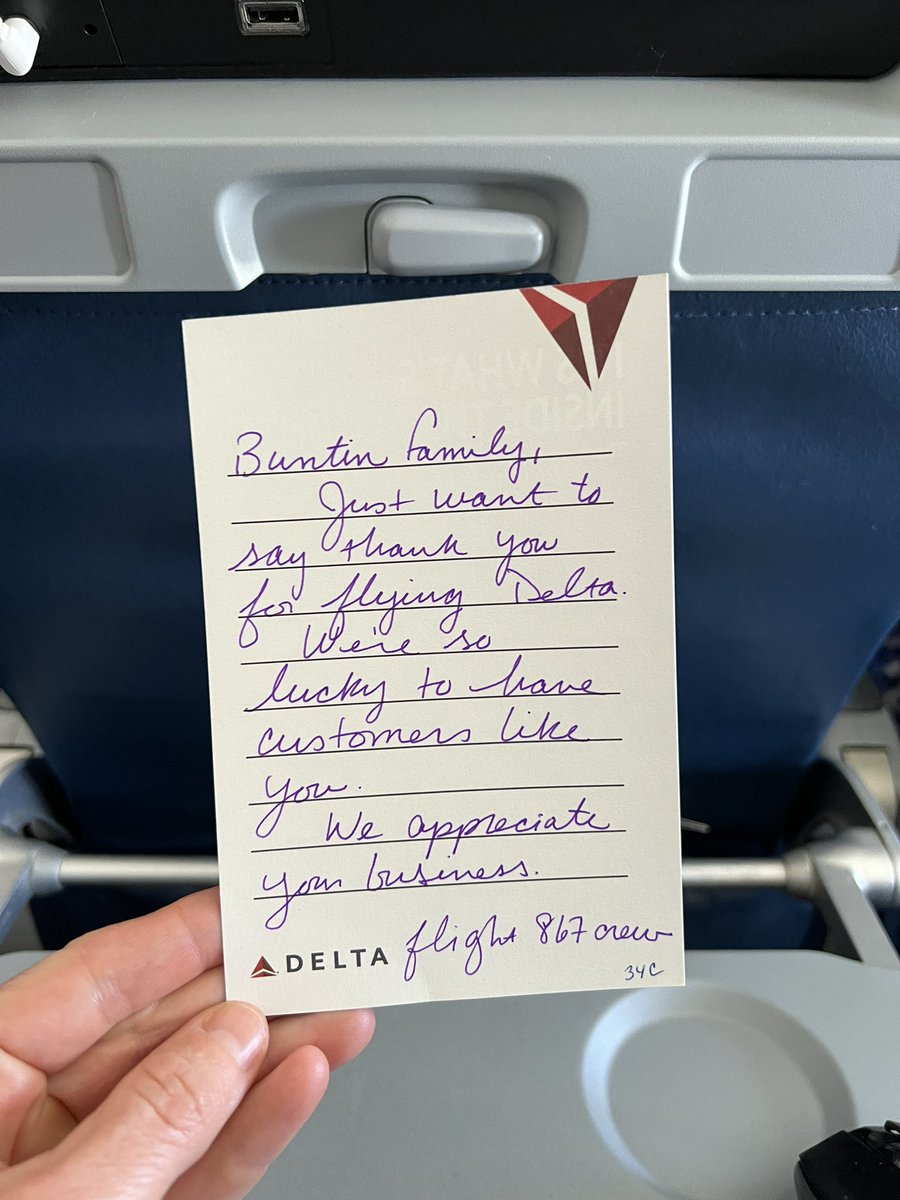 Buntin family,
Just want to
say thank you
for flying Delta.
We're so
lucky to have
customers like
you.
We appreciate
your business.
DELTA flight 867 crew
34C